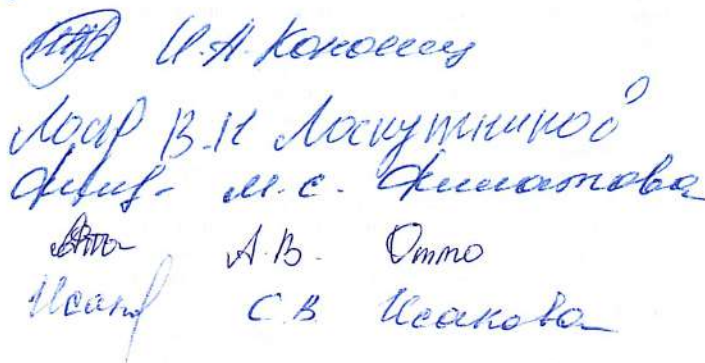 И.А. Кокосец
В.Н Лоскутникой
М.С. Филатова
А.В. Отто
С.В. Исакова